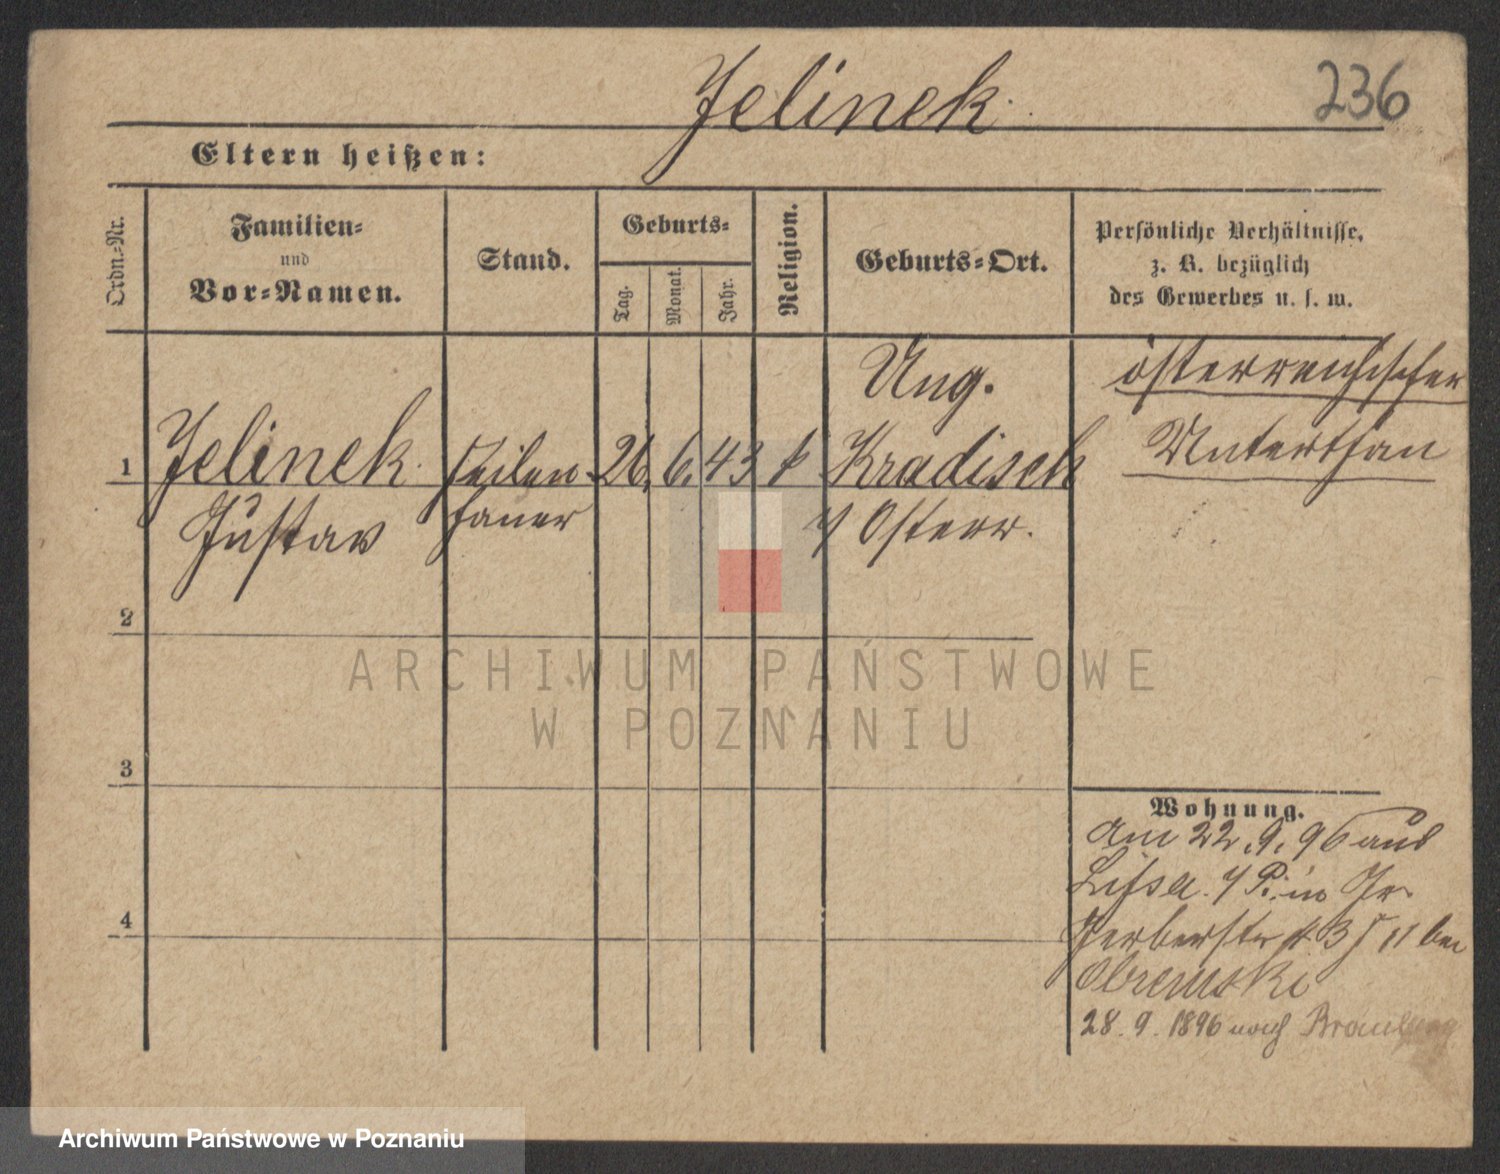 Jelinek.
236
Eltern heißen:
Ordn.-Nr.
Familien-
und
Vor-Namen.
Stand.
Geburts-
Tag.
Monat.
Jahr.
Religion.
Geburts-Ort.
Persönliche Verhältnisse,
z. B. bezüglich
des Gewerbes u. s. w.
1
Jelinek
Gustav
Feilen-
hauer
26. 6. 43
k
Ung.
Kradisch
Österr.
österreichischer
Unterthan
2
3
4
ARCHIWUM PAŃSTWOWE
W POZNANIU
Wohnung.
Am 22.9.96 aus
Lissa P. in
Gerberstr 3 11 bei
Obremski
28. 9. 1896 nach
Archiwum Państwowe w Poznaniu